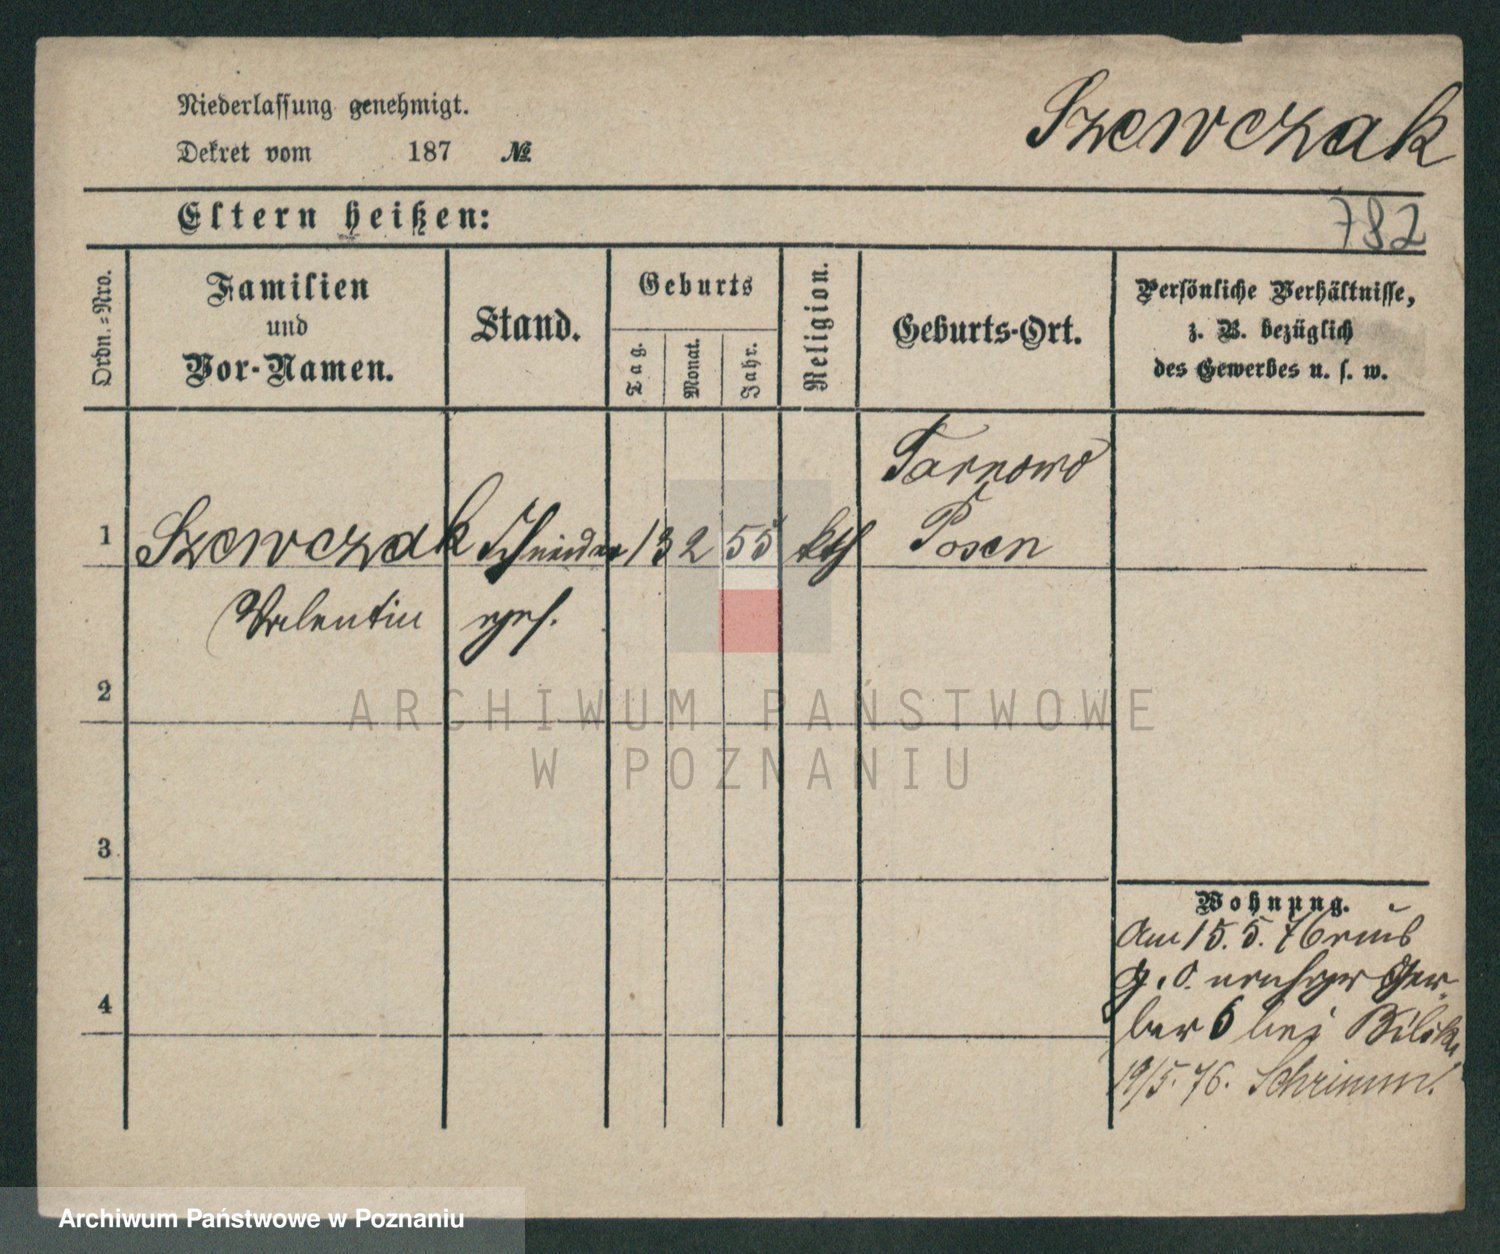 Niederlassung genehmigt.
Szewczak
Dekret vom 187 №
Eltern heißen:
782
Ordn.-Nro.
Familien
und
Vor-Namen.
Stand.
Geburts
Tag.
Monat.
Jahr.
Religion.
Geburts-Ort.
Persönliche Verhältnisse,
z. B. bezüglich
des Gewerbes u. s. w.
Tarnowo
1 Szewczak Schneider 13 2 55 kth Posen
Valentin ges.
2
3
4
Wohnung.
Am 15. 5. 76 aus
Ger-
ber 6 bei
19/5. 76. Schrimm.
ARCHIWUM PAŃSTWOWE
W POZNANIU
Archiwum Państwowe w Poznaniu